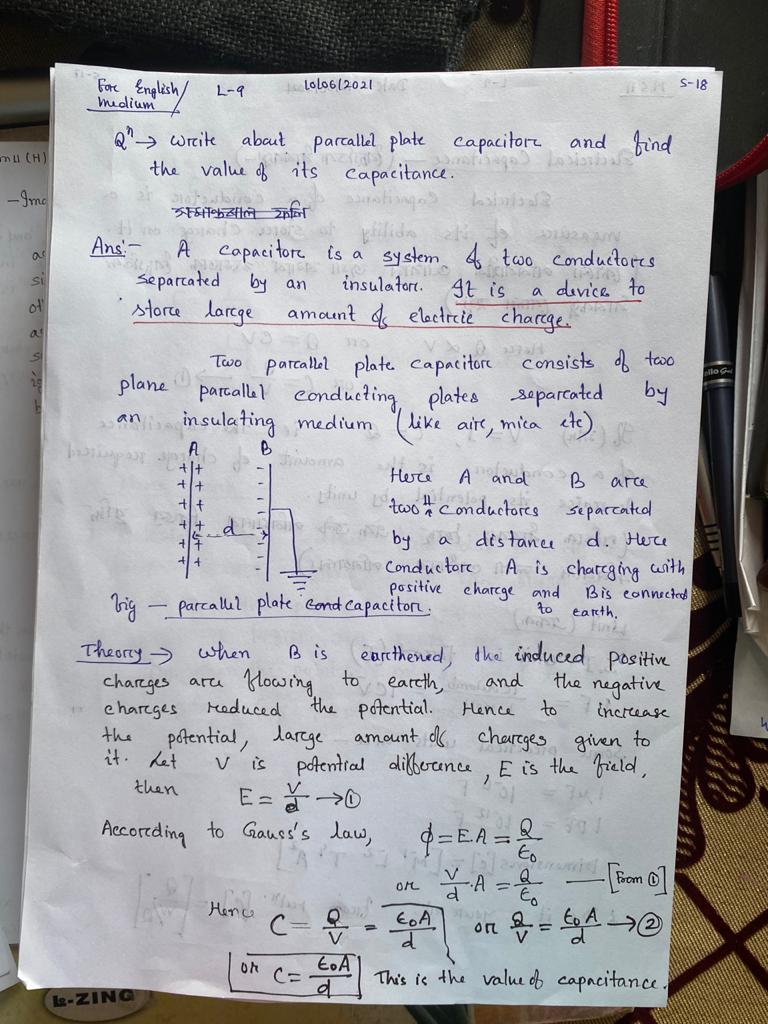 For English Medium/ L-9 10/06/2021 S-18
Qⁿ → Write about parallel plate capacitor and find
the value of its capacitance.
Ans:- A capacitor is a system of two conductors
separated by an insulator. It is a device to
store large amount of electric charge.
Two parallel plate capacitor consists of two
plane parallel conducting plates separated by
an insulating medium (like air, mica etc)
A B
Here A and B are
two conductors separated
d
by a distance d. Here
conductor A is charging with
positive charge and B is connected
to earth.
fig — parallel plate cond capacitor.
Theory → When B is earthened, the induced positive
charges are flowing to earth, and the negative
charges reduced the potential. Hence to increase
the potential, large amount of charges given to
it. Let V is potential difference, E is the field,
then E = V/d → ①
According to Gauss's law, ϕ = E.A = Q/ε₀
or V/d . A = Q/ε₀ — [From ①]
Hence C = Q/V = ε₀A/d or Q/V = ε₀A/d → ②
or C = ε₀A/d This is the value of capacitance.
Le-ZING